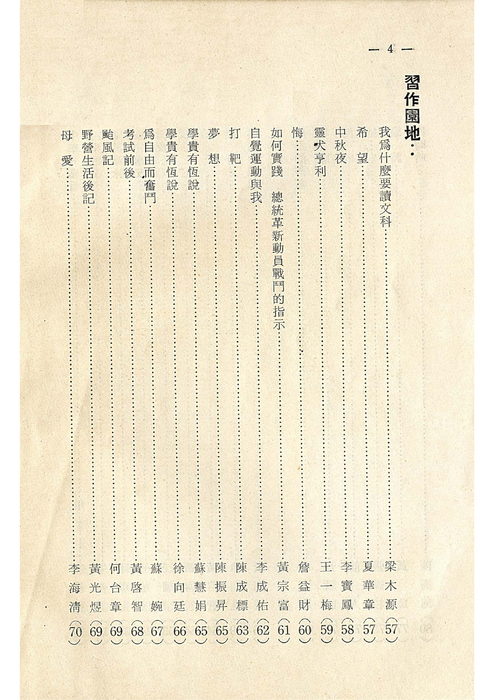 — 4 —
習作園地：
我爲什麼要讀文科……梁木源(57)
希望……夏華章(57)
中秋夜……李寶鳳(58)
靈犬亨利……王一梅(59)
悔……詹益財(60)
如何實踐 總統革新動員戰鬥的指示……黃宗富(61)
自覺運動與我……李成佑(62)
打靶……陳成標(63)
夢想……陳振昇(65)
學貴有恆說……蘇慧娟(65)
學貴有恆說……徐向廷(66)
爲自由而奮鬥……蘇婉(67)
考試前後……黃啓智(68)
颱風記……何台章(69)
野營生活後記……黃光煜(69)
母愛……李海清(70)